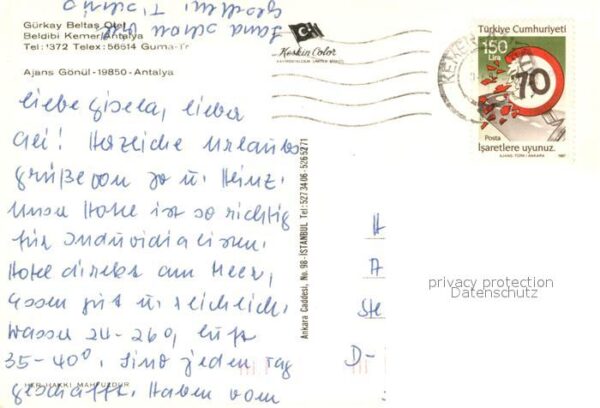 Gürkay Beltaş Otel
Beldibi Kemer/Antalya
Tel: 1372 Telex: 56614 Guma-Tr
Ajans Gönül - 19850 - Antalya
liebe Gisela, lieber
Gei! Herzliche Urlaubs
grüße von Jo u. Heinz.
Unser Hotel ist so richtig
für Individialisten.
Hotel direkt am Meer,
Essen gut u. reichlich.
Wasser 24-26°, Luft
35-40°. Sind jeden Tag
geschafft. Haben vom
HER HAKKI MAHFUZDUR
Keskin Color
Ankara Caddesi, No. 98-İSTANBUL Tel: 527 34 06-526 52 71
KEMER
Türkiye Cumhuriyeti
150
Lira
70
Posta
İşaretlere uyunuz.
AJANS-TÜRK/ANKARA 1987
H
A
Ste
D-
privacy protection
Datenschutz